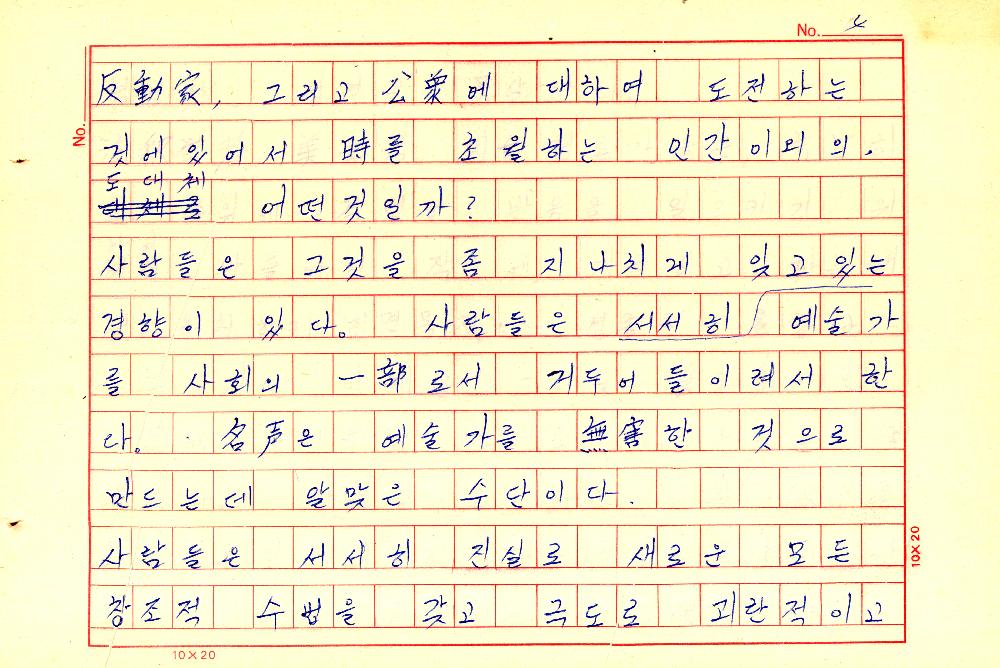 No. 4
No.
反動家, 그리고 公衆에 대하여 도전하는
것에 있어서 時를 초월하는 인간이외의.
도대체
어떤것일까?
사람들은 그것을 좀 지나치게 잊고있는
경향이 있다. 사람들은 서서히 예술가
를 사회의 一部로서 거두어 들이려서 한
다. 名声은 예술가를 無害한 것으로
만드는데 알맞은 수단이다.
사람들은 서서히 진실로 새로운 모든
창조적 수법을 갖고 극도로 괴란적이고
10×20
10×20